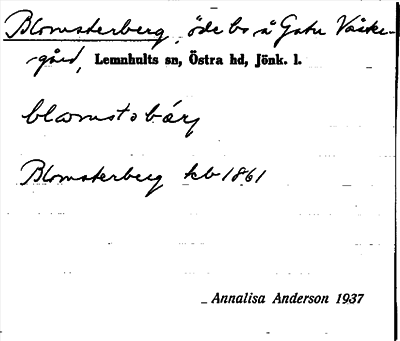 Blomsterberg, öde bs å Gate Väster-
gård, Lemnhults sn, Östra hd, Jönk. l.
blɷmstobärj
Blomsterberg kb 1861
Annalisa Anderson 1937